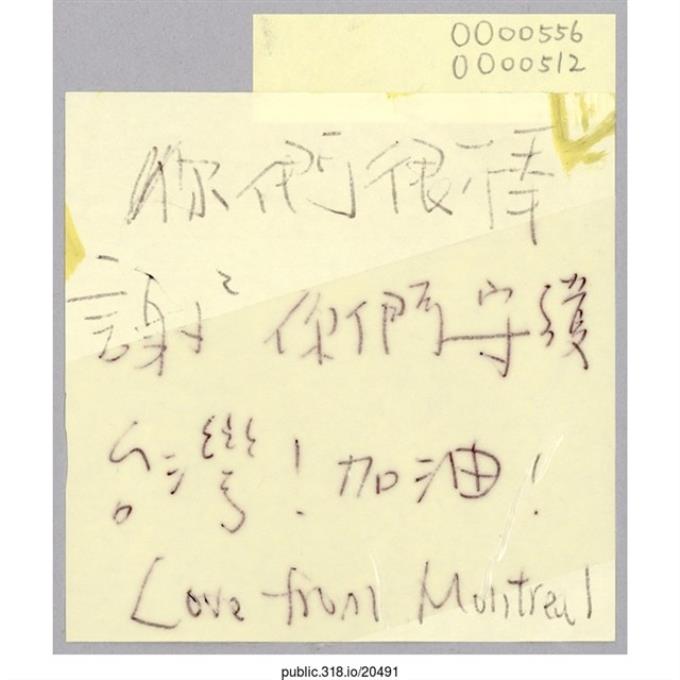 0000556
0000512
你們很棒
謝謝你們守護
台灣！加油！
Love from Montreal
public.318.io/20491